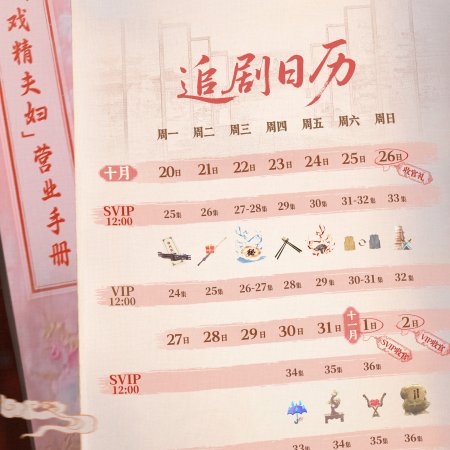 戏精夫妇」营业手册
追剧日历
周一 周二 周三 周四 周五 周六 周日
十月 20日 21日 22日 23日 24日 25日 26日
收官礼
SVIP 12:00 25集 26集 27-28集 29集 30集 31-32集 33集
VIP 12:00 24集 25集 26-27集 28集 29集 30-31集 32集
27日 28日 29日 30日 31日 十一月 1日 2日
SVIP收官 VIP收官
SVIP 12:00 34集 35集 36集
33集 34集 35集 36集